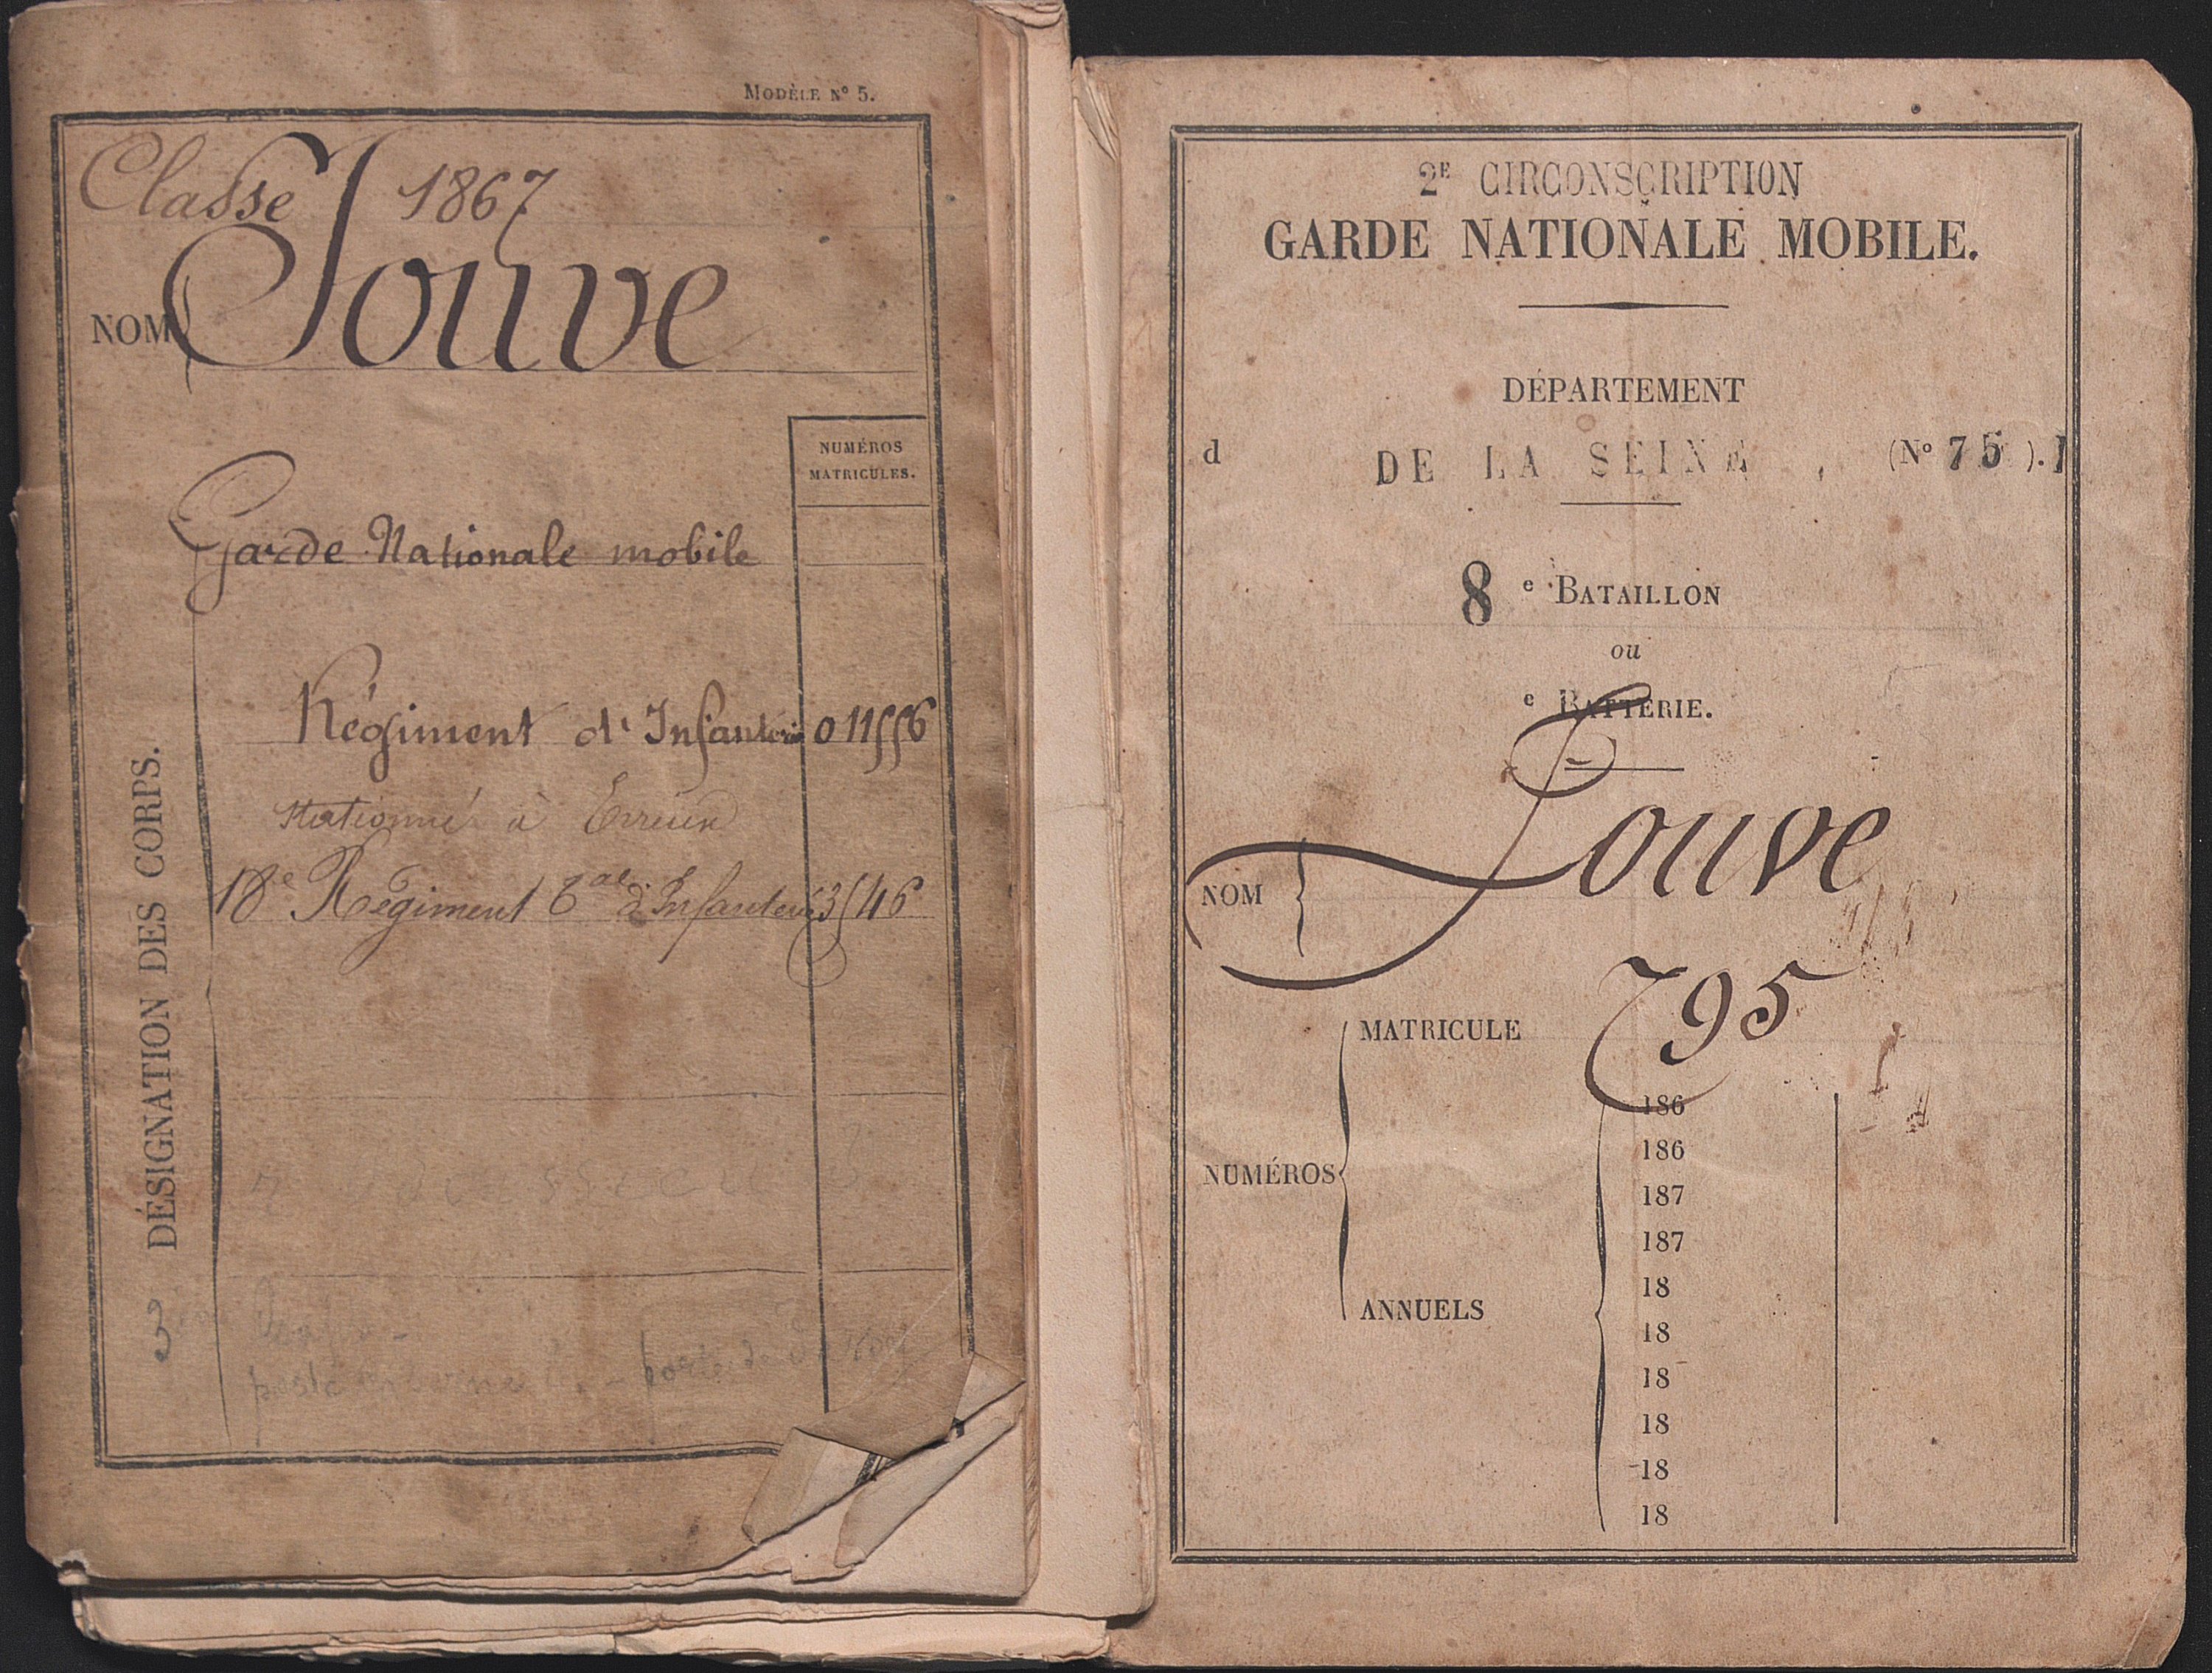 MODÈLE Nº 5.
Classe 1867
NOM Jouve
NUMÉROS
MATRICULES.
Garde Nationale mobile
Régiment d'Infanterie 011556
stationné à
18e Régiment Tal d'Infanterie 3546
DÉSIGNATION DES CORPS.
2E CIRCONSCRIPTION
GARDE NATIONALE MOBILE.
DÉPARTEMENT
d DE LA SEINE, (Nº 75).
8 e BATAILLON
ou
e BATTERIE.
NOM Jouve
MATRICULE 795
NUMÉROS
ANNUELS
186
186
187
187
18
18
18
18
18
18